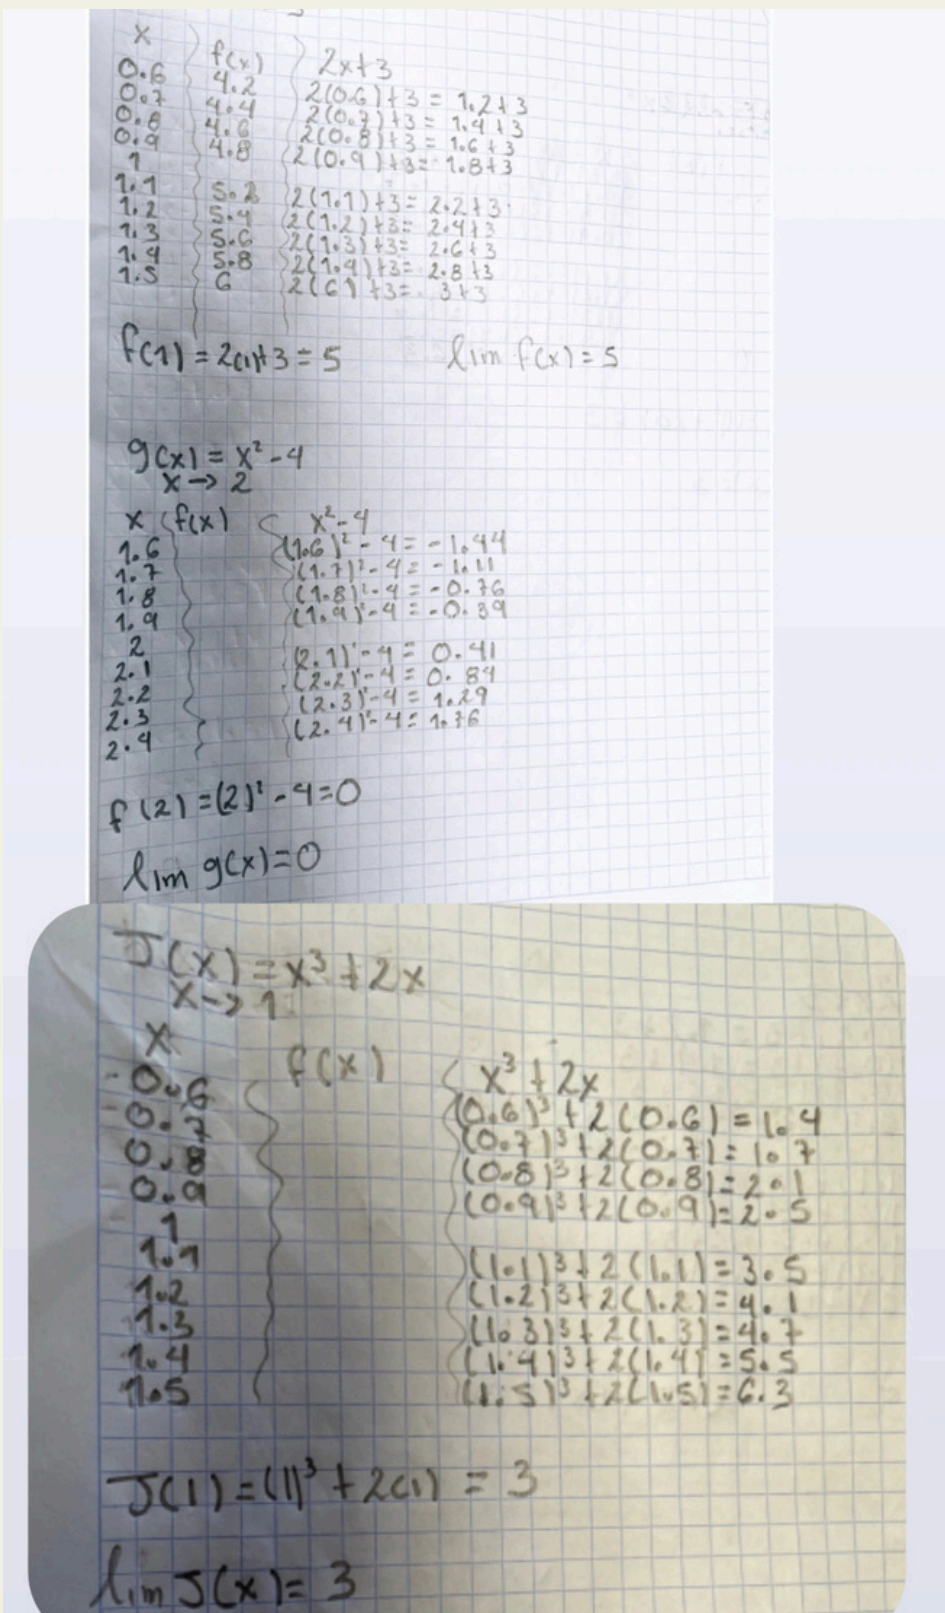 x f(x) 2x+3
0.6 4.2 2(0.6)+3 = 1.2+3
0.7 4.4 2(0.7)+3 = 1.4+3
0.8 4.6 2(0.8)+3 = 1.6+3
0.9 4.8 2(0.9)+3 = 1.8+3
1
1.1 5.2 2(1.1)+3 = 2.2+3
1.2 5.4 2(1.2)+3 = 2.4+3
1.3 5.6 2(1.3)+3 = 2.6+3
1.4 5.8 2(1.4)+3 = 2.8+3
1.5 6 2(6)+3 = 3+3
f(1) = 2(1)+3 = 5 lim f(x) = 5
g(x) = x² - 4
x → 2
x f(x) x² - 4
1.6 (1.6)² - 4 = -1.44
1.7 (1.7)² - 4 = -1.11
1.8 (1.8)² - 4 = -0.76
1.9 (1.9)² - 4 = -0.39
2
2.1 (2.1)² - 4 = 0.41
2.2 (2.2)² - 4 = 0.84
2.3 (2.3)² - 4 = 1.29
2.4 (2.4)² - 4 = 1.76
f(2) = (2)² - 4 = 0
lim g(x) = 0
J(x) = x³ + 2x
x → 1
x f(x) x³ + 2x
-0.6 (0.6)³ + 2(0.6) = 1.4
-0.7 (0.7)³ + 2(0.7) = 1.7
0.8 (0.8)³ + 2(0.8) = 2.1
0.9 (0.9)³ + 2(0.9) = 2.5
1
1.1 (1.1)³ + 2(1.1) = 3.5
1.2 (1.2)³ + 2(1.2) = 4.1
1.3 (1.3)³ + 2(1.3) = 4.7
1.4 (1.4)³ + 2(1.4) = 5.5
1.5 (1.5)³ + 2(1.5) = 6.3
J(1) = (1)³ + 2(1) = 3
lim J(x) = 3